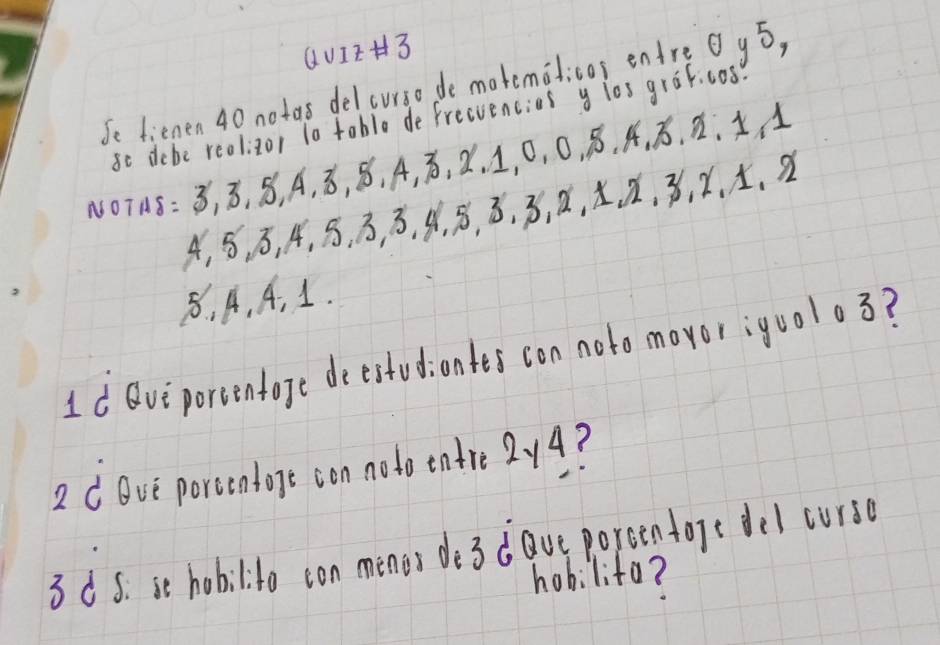 QUIZ #3
Se tienen 40 notas del curso de matemáticas entre 0 y 5,
se debe realizar la tabla de frecuencias y las gráficas.
NOTAS: 3, 3, 5, 4, 3, 5, 4, 3, 2, 1, 0, 0, 5, 4, 3, 2, 1, 1
4, 5, 3, 4, 5, 3, 3, 4, 5, 3, 3, 2, 1, 2, 3, 2, 1, 2
5, 4, 4, 1.
1 ¿Qué porcentaje de estudiantes con nota mayor igual a 3?
2 ¿Qué porcentaje con nota entre 2 y 4?
3 ¿Si se habilita con menos de 3 ¿Que porcentaje del curso
habilita?